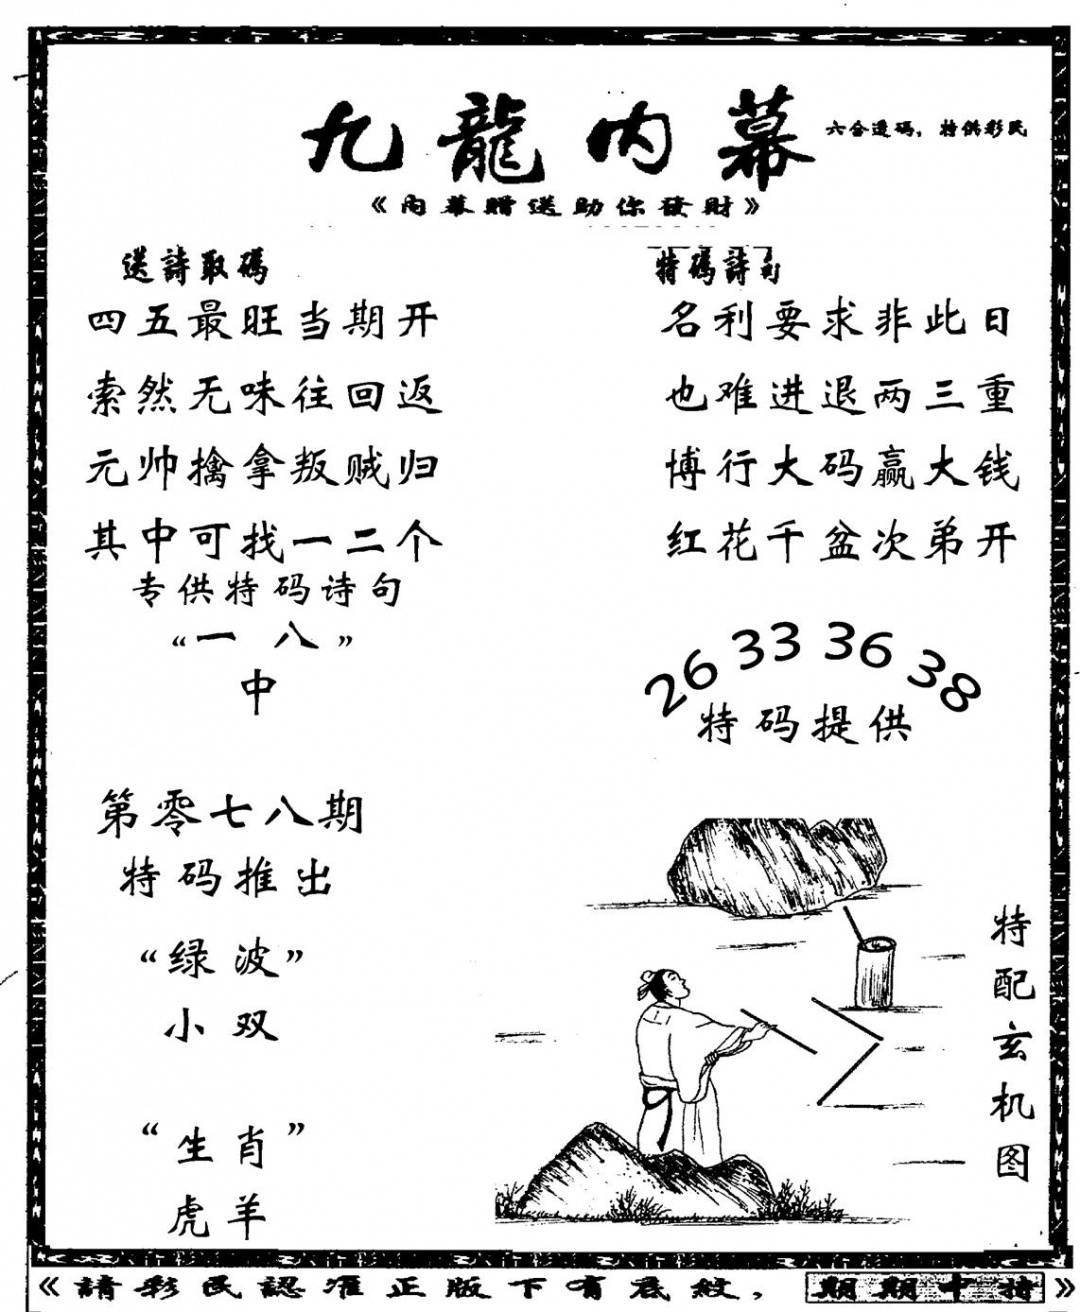 九龍内幕
六合透碼，特供彩民
《内幕贈送助你發財》
送詩取碼
四五最旺当期开
索然无味往回返
元帅擒拿叛贼归
其中可找一二个
专供特码诗句
“一八”
中
特碼詩句
名利要求非此日
也难进退两三重
博行大码赢大钱
红花千盆次弟开
26 33 36 38
特码提供
第零七八期
特码推出
“绿波”
小双
“生肖”
虎羊
特配玄机图
《請彩民認准正版下有底紋，期期中特》